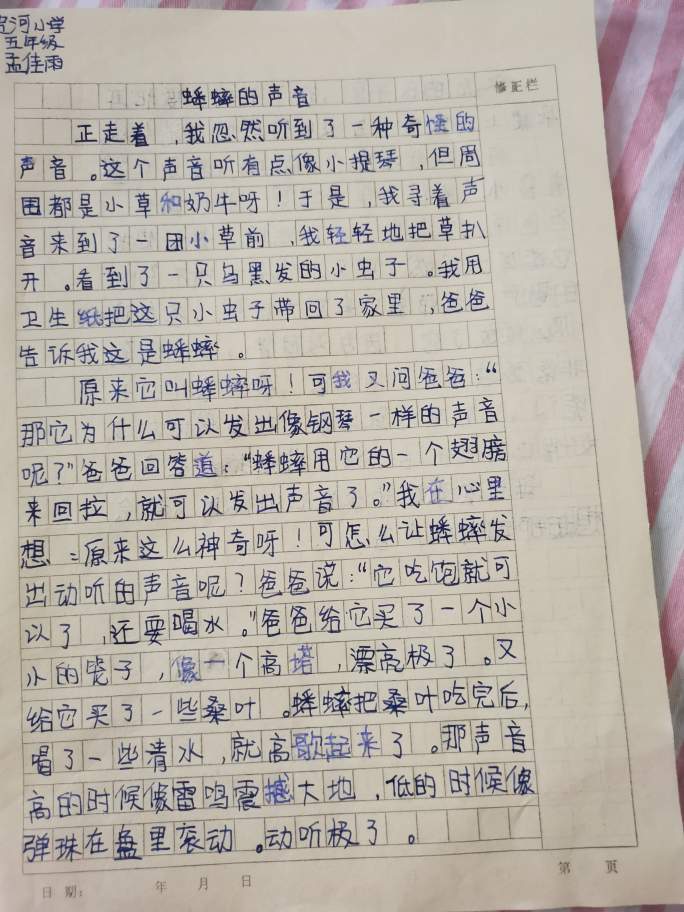 河小学
五年级
孟佳雨
修正栏
蟋蟀的声音
正走着，我忽然听到了一种奇怪的
声音。这个声音听有点像小提琴，但周
围都是小草和奶牛呀！于是，我寻着声
音来到了一团小草前，我轻轻地把草扒
开。看到了一只乌黑发的小虫子。我用
卫生纸把这只小虫子带回了家里，爸爸
告诉我这是蟋蟀。
原来它叫蟋蟀呀！可我又问爸爸：“
那它为什么可以发出像钢琴一样的声音
呢？”爸爸回答道：“蟋蟀用它的一个翅膀
来回拉，就可以发出声音了。”我在心里
想：原来这么神奇呀！可怎么让蟋蟀发
出动听的声音呢？爸爸说：“它吃饱就可
以了，还要喝水。”爸爸给它买了一个小
小的笼子，像一个高塔，漂亮极了。又
给它买了一些桑叶。蟋蟀把桑叶吃完后，
喝了一些清水，就高歌起来了。那声音
高的时候像雷鸣震撼大地，低的时候像
弹珠在盘里滚动。动听极了。
日期： 年 月 日
第 页